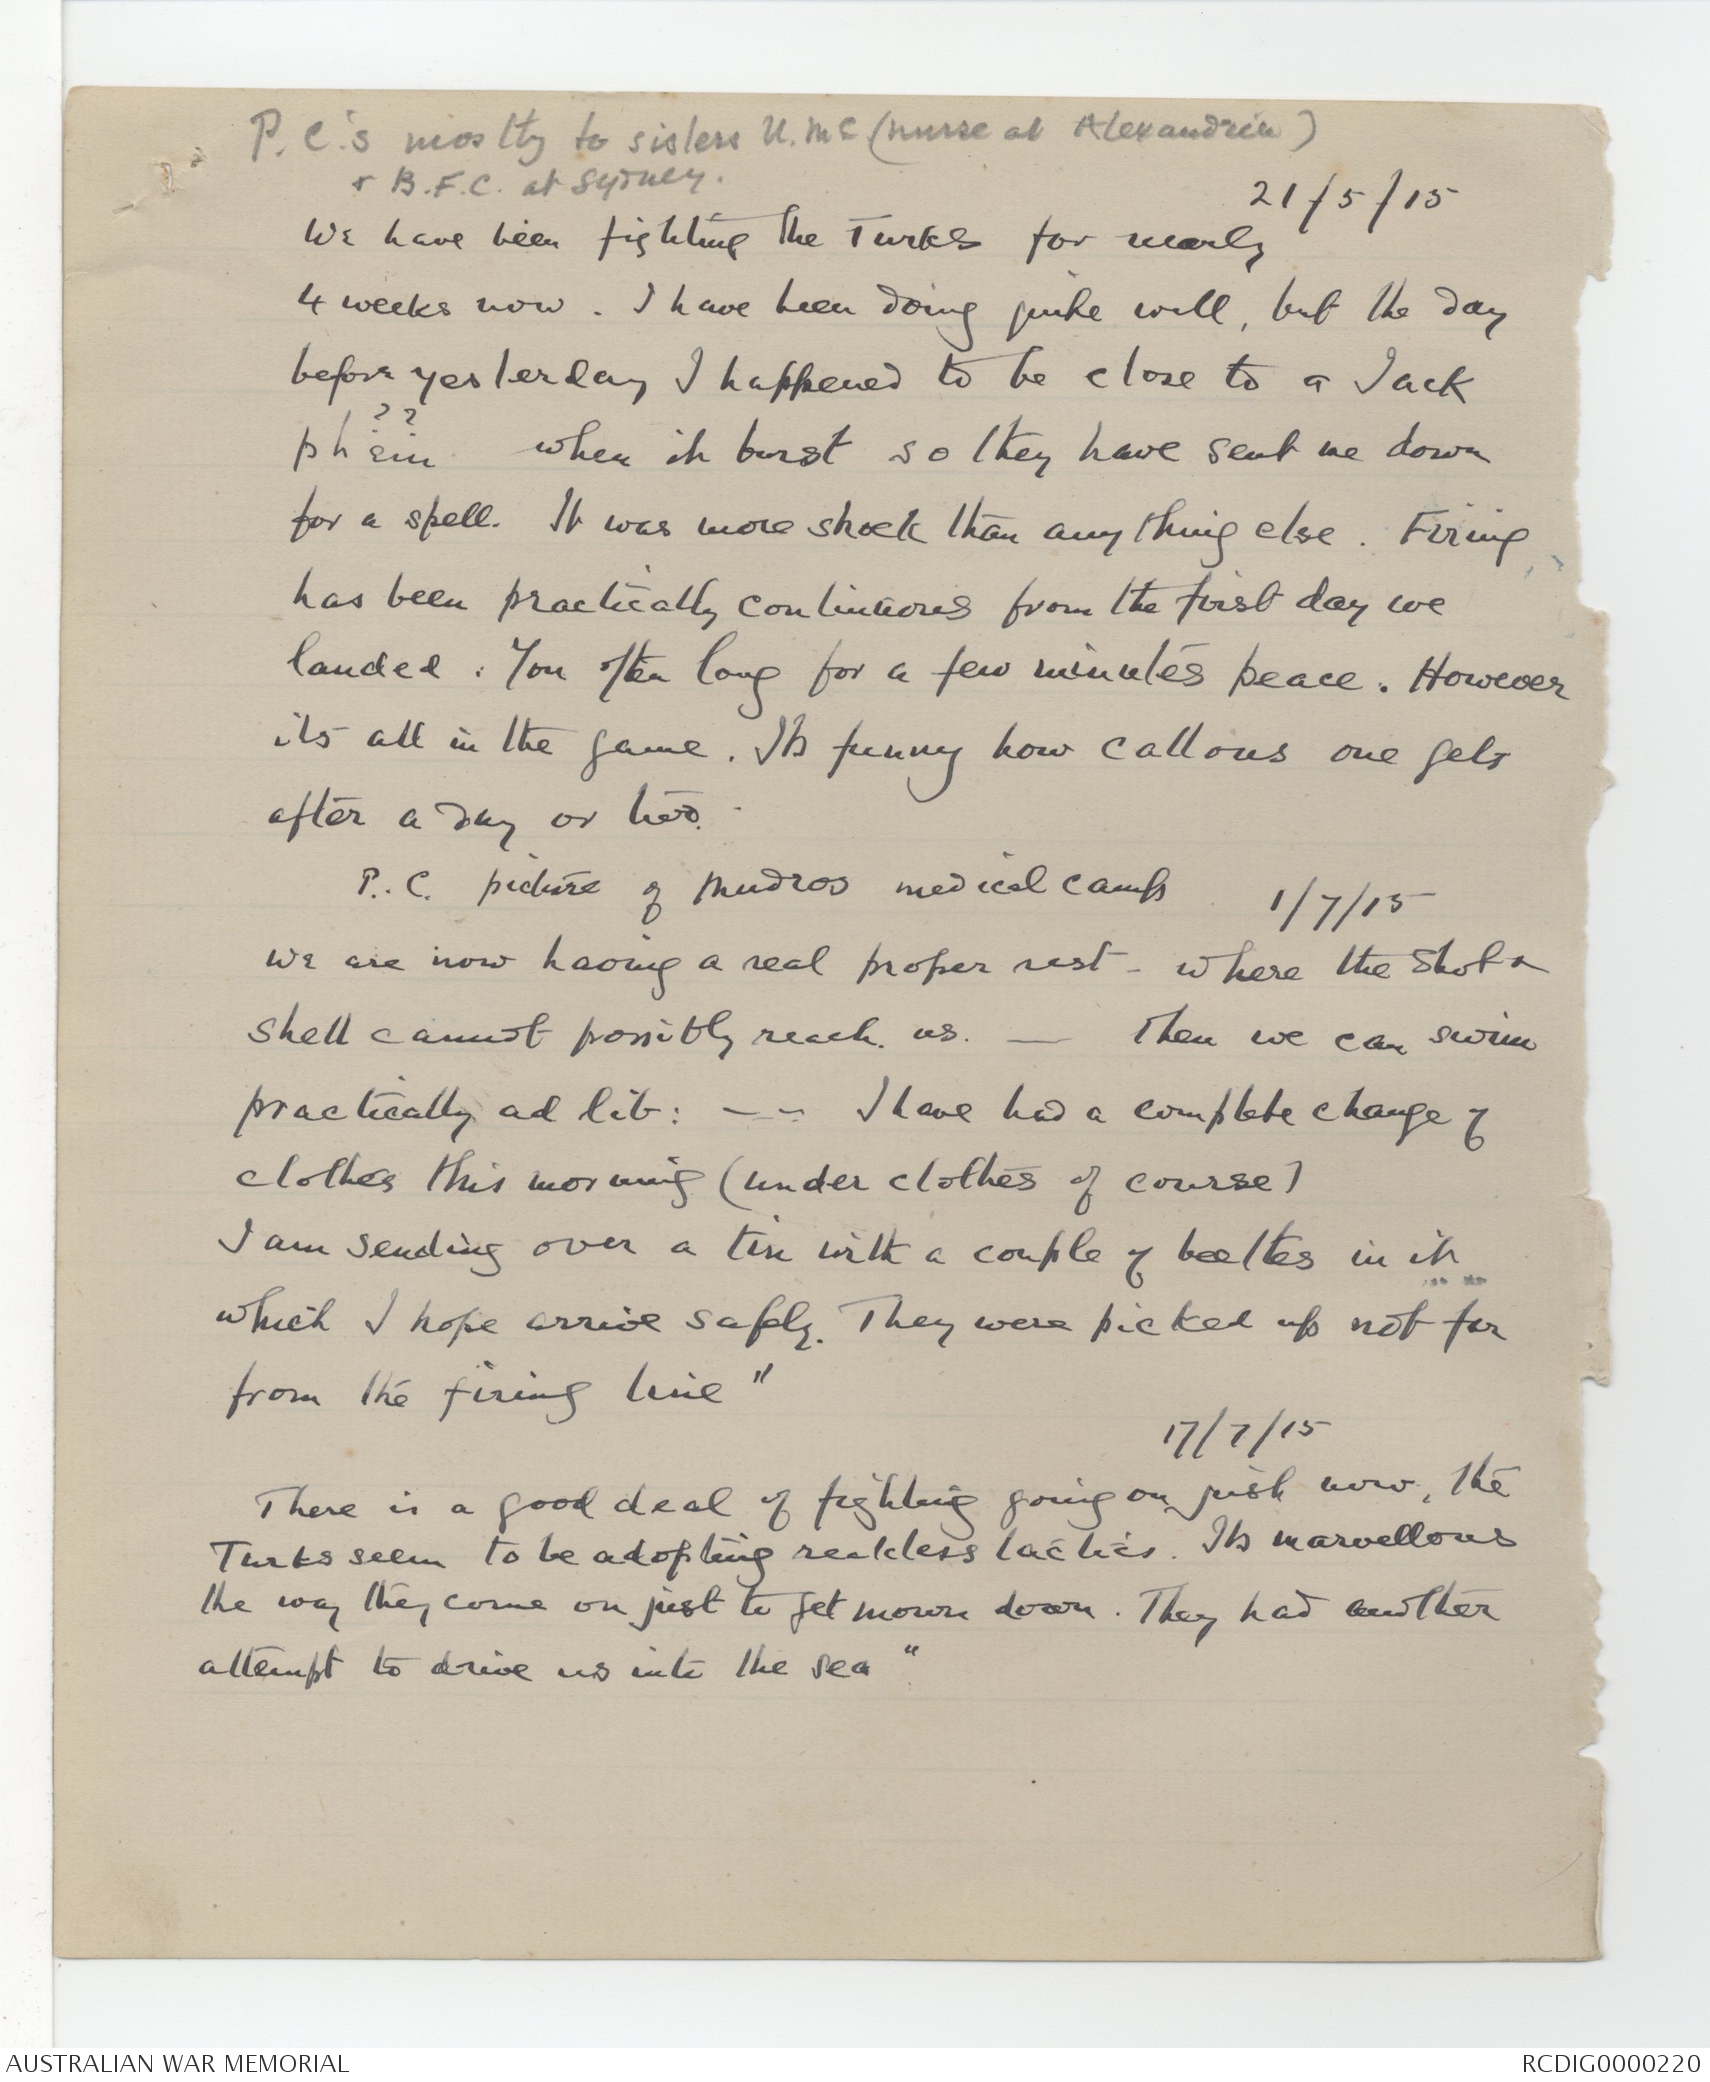 P.C.'s mostly to sisters U.M.C (nurse at Alexandria)
+ B.F.C. at Sydney.
21/5/15
We have been fighting the Turks for nearly
4 weeks now. I have been doing quite well, but the day
before yesterday I happened to be close to a Jack
??
when it burst so they have sent me down
for a spell. It was more shock than anything else. Firing
has been practically continuous from the first day we
landed. You often long for a few minutes peace. However
its all in the game. Its funny how callous one gets
after a day or two.
P.C. picture of Mudros medical camp
1/7/15
We are now having a real proper rest - where the shot +
shell cannot possibly reach us. — Then we can swim
practically ad lib: - - - I have had a complete change of
clothes this morning (under clothes of course)
I am sending over a tin with a couple of beetles in it
which I hope arrive safely. They were picked up not far
from the firing line"
17/7/15
There is a good deal of fighting going on just now, the
Turks seem to be adopting reckless tactics. Its marvellous
the way they come on just to get mown down. They had another
attempt to drive us into the sea"
AUSTRALIAN WAR MEMORIAL
RCDIG0000220